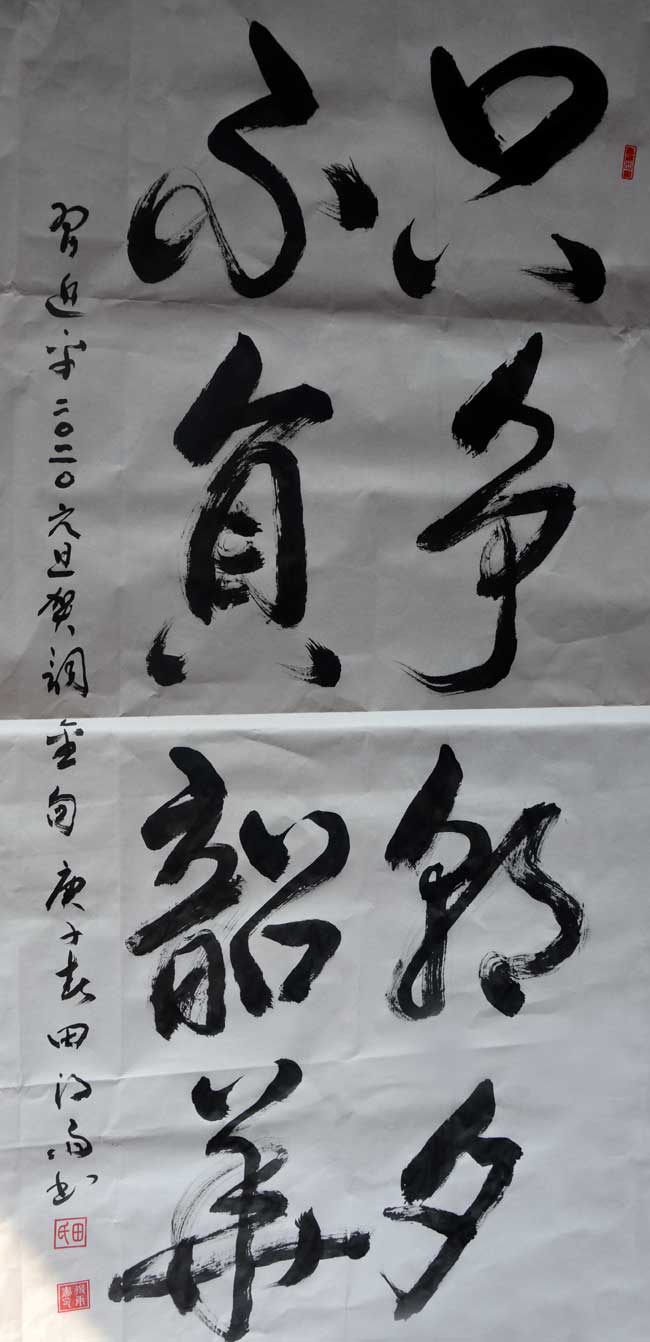 只争朝夕
不负韶华
习近平二〇二〇元旦贺词金句庚子春田书
田氏